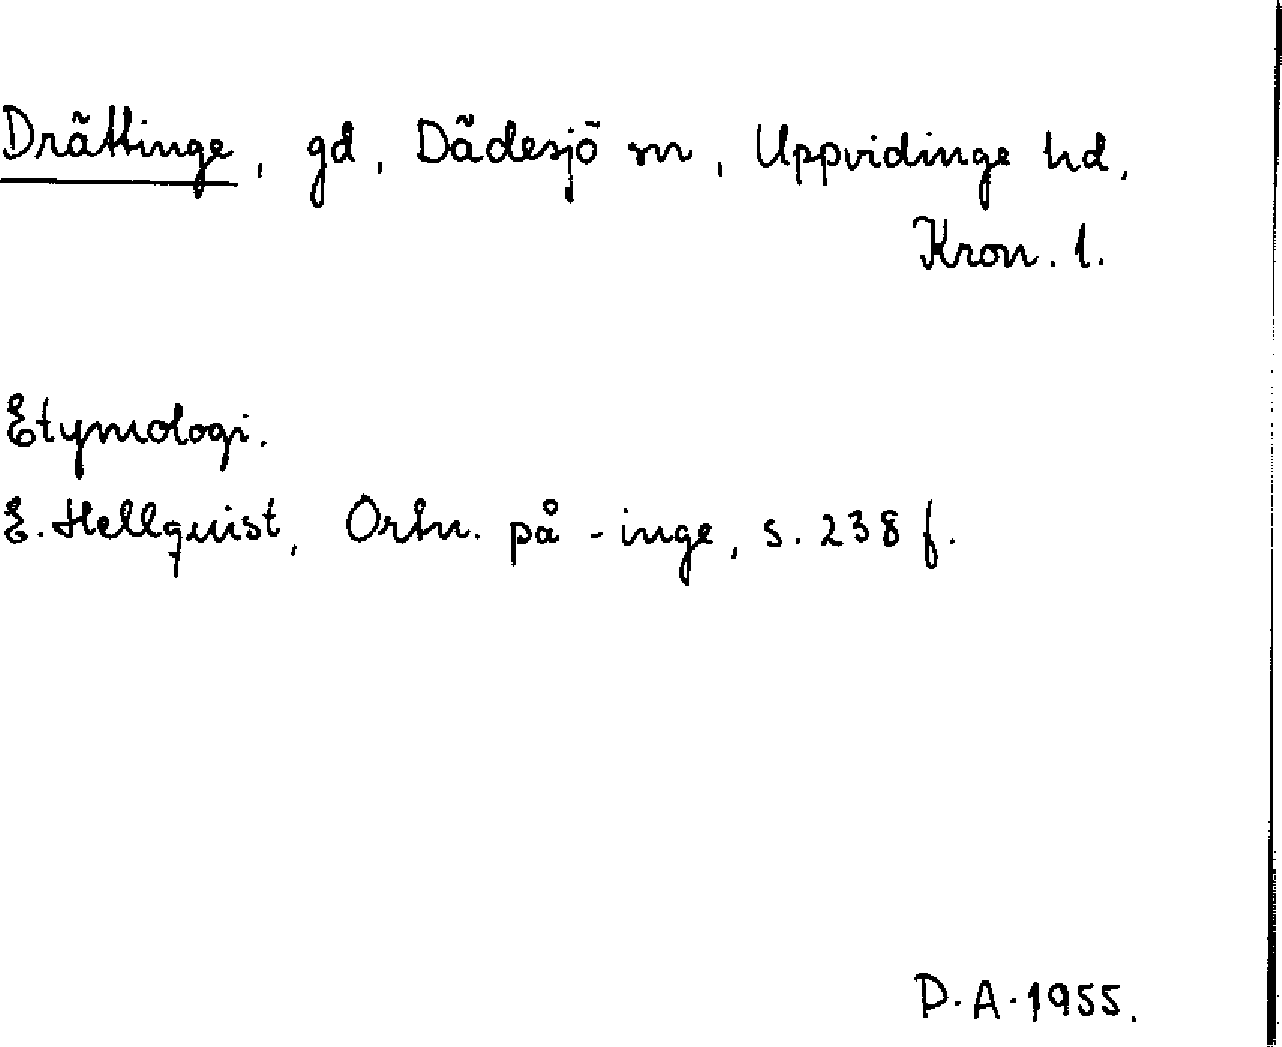 Drättinge, gd, Dädesjö sn, Uppvidinge hd,
Kron. l.
Etymologi.
E. Hellquist, Ortn. på -inge, s. 238 f.
D.A.1955.